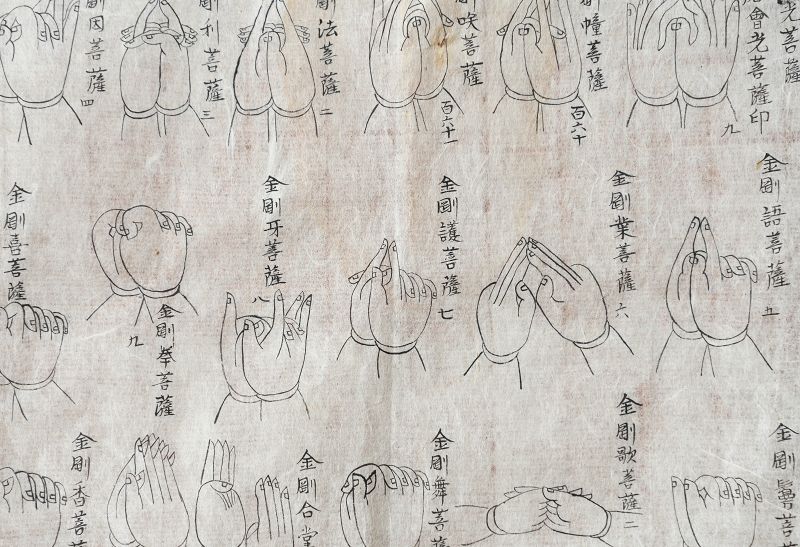 光菩薩
會光菩薩印
九
幢菩薩
百六十
咲菩薩
百六十一
剛法菩薩 二
剛利菩薩 三
剛因菩薩 四
金剛語菩薩 五
金剛業菩薩 六
金剛護菩薩 七
金剛牙菩薩 八
金剛拳菩薩
九
金剛喜菩薩
金剛鬘菩
金剛歌菩薩 二
金剛舞菩
金剛合
金剛香菩